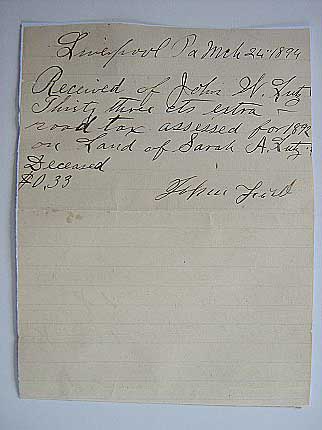 Liverpool Pa Mch 24 1894
Received of John W. Lutz
Thirty three cts extra
road tax assessed for 1892
on Land of Sarah A. Lutz
Deceased
$0.33
John